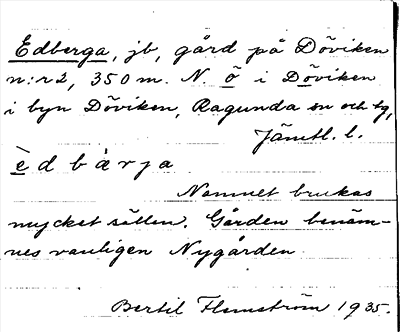 Edberga, jb, gård på Döviken
n:r 2, 350 m. N. ö i Döviken
i byn Döviken, Ragunda sn och tg,
Jämtl. l.
èdbàrja
Namnet brukas
mycket sällan. Gården benäm-
nes vanligen Nygården.
Bertil Flemström 1935.